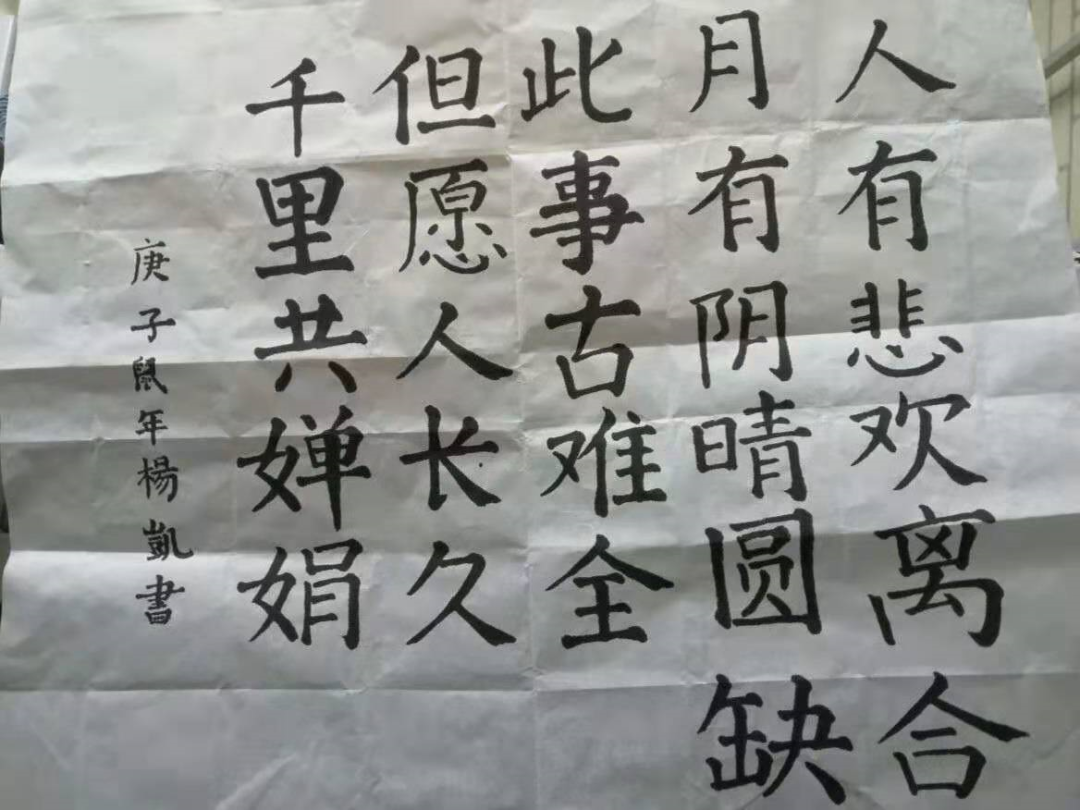 人有悲欢离合
月有阴晴圆缺
此事古难全
但愿人长久
千里共婵娟
庚子鼠年楊凱書